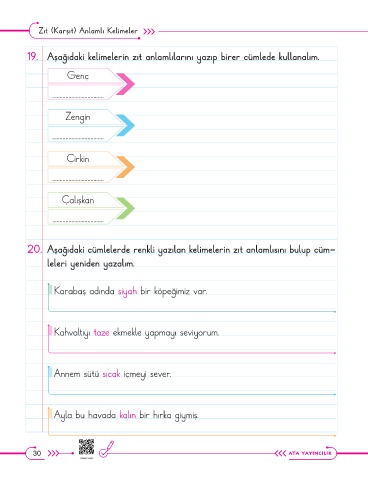 Zıt (Karşıt) Anlamlı Kelimeler
19. Aşağıdaki kelimelerin zıt anlamlılarını yazıp birer cümlede kullanalım.
Genç
Zengin
Çirkin
Çalışkan
20. Aşağıdaki cümlelerde renkli yazılan kelimelerin zıt anlamlısını bulup cüm-
leleri yeniden yazalım.
Karabaş adında siyah bir köpeğimiz var.
Kahvaltıyı taze ekmekle yapmayı seviyorum.
Annem sütü sıcak içmeyi sever.
Ayla bu havada kalın bir hırka giymiş.
30
ATA YAYINCILIK